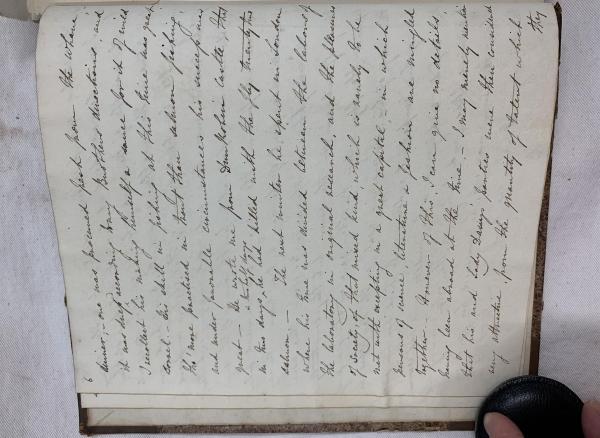 6
dinner, – one was procured fresh from the
it was drest according to my Brothers directions and
I recollect his making himself a sauce for it of
His skill in fishing at this time was great
tho' more practised in trout than salmon fishing
and under favorable circumstances his success was
great – He wrote me from Dunrobin Castle, that
in two & a half days
in two days, he had killed with the fly twenty two
salmon. – The next winter he spent in London
where his time was divided between the labors of
the laboratory in original research and the pleasures
of society, of that mixed kind, which is rarely to be
met with excepting in a great capital – in which
persons of science literature & fashion are mingled
together. However of this I can give no details
having been abroad at the time. – I may merely
that his and Lady Davy's parties were then considered
very attractive, from the quantity of talent which
they